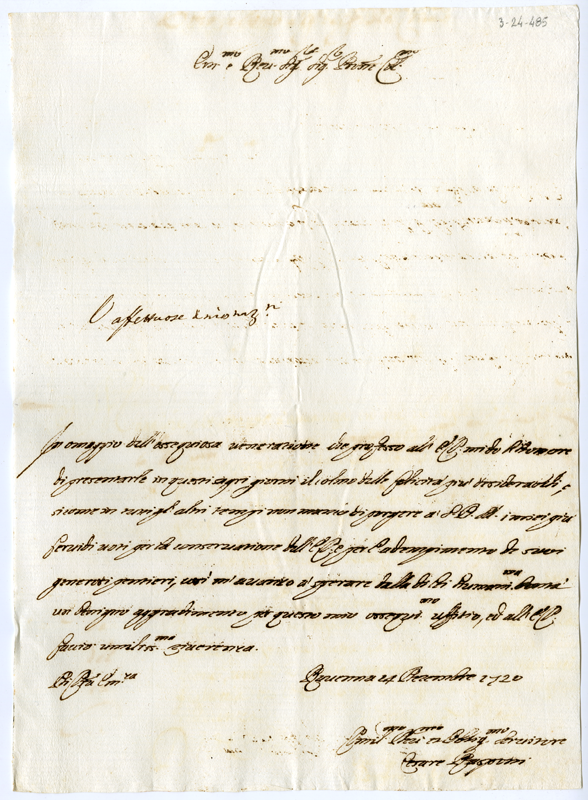 3-24-485
Em.mo e Rev.mo Sig.
affettuose
In omaggio dell'ossequiosa venerazione che professo all' mi do l'honore
di presentarle in questi sagri giorni il colmo delle felicità più desiderabili, e
si come in tutti gl'altri tempi non manco di porgere a i miei più
fervidi voti per la conservazione dell' e per l'adempimento de suoi
generosi pensieri, così m'avanzo a sperare dalla di lei
un benigno aggradimento per questo mio ossequi.mo uffitio, ed all'
faccio umiliss.ma riverenza.
Di
Ravenna 24 Decembre 1720
Umil.mo Dev.mo et Obblig.mo Servitore
Cesare Rasponi